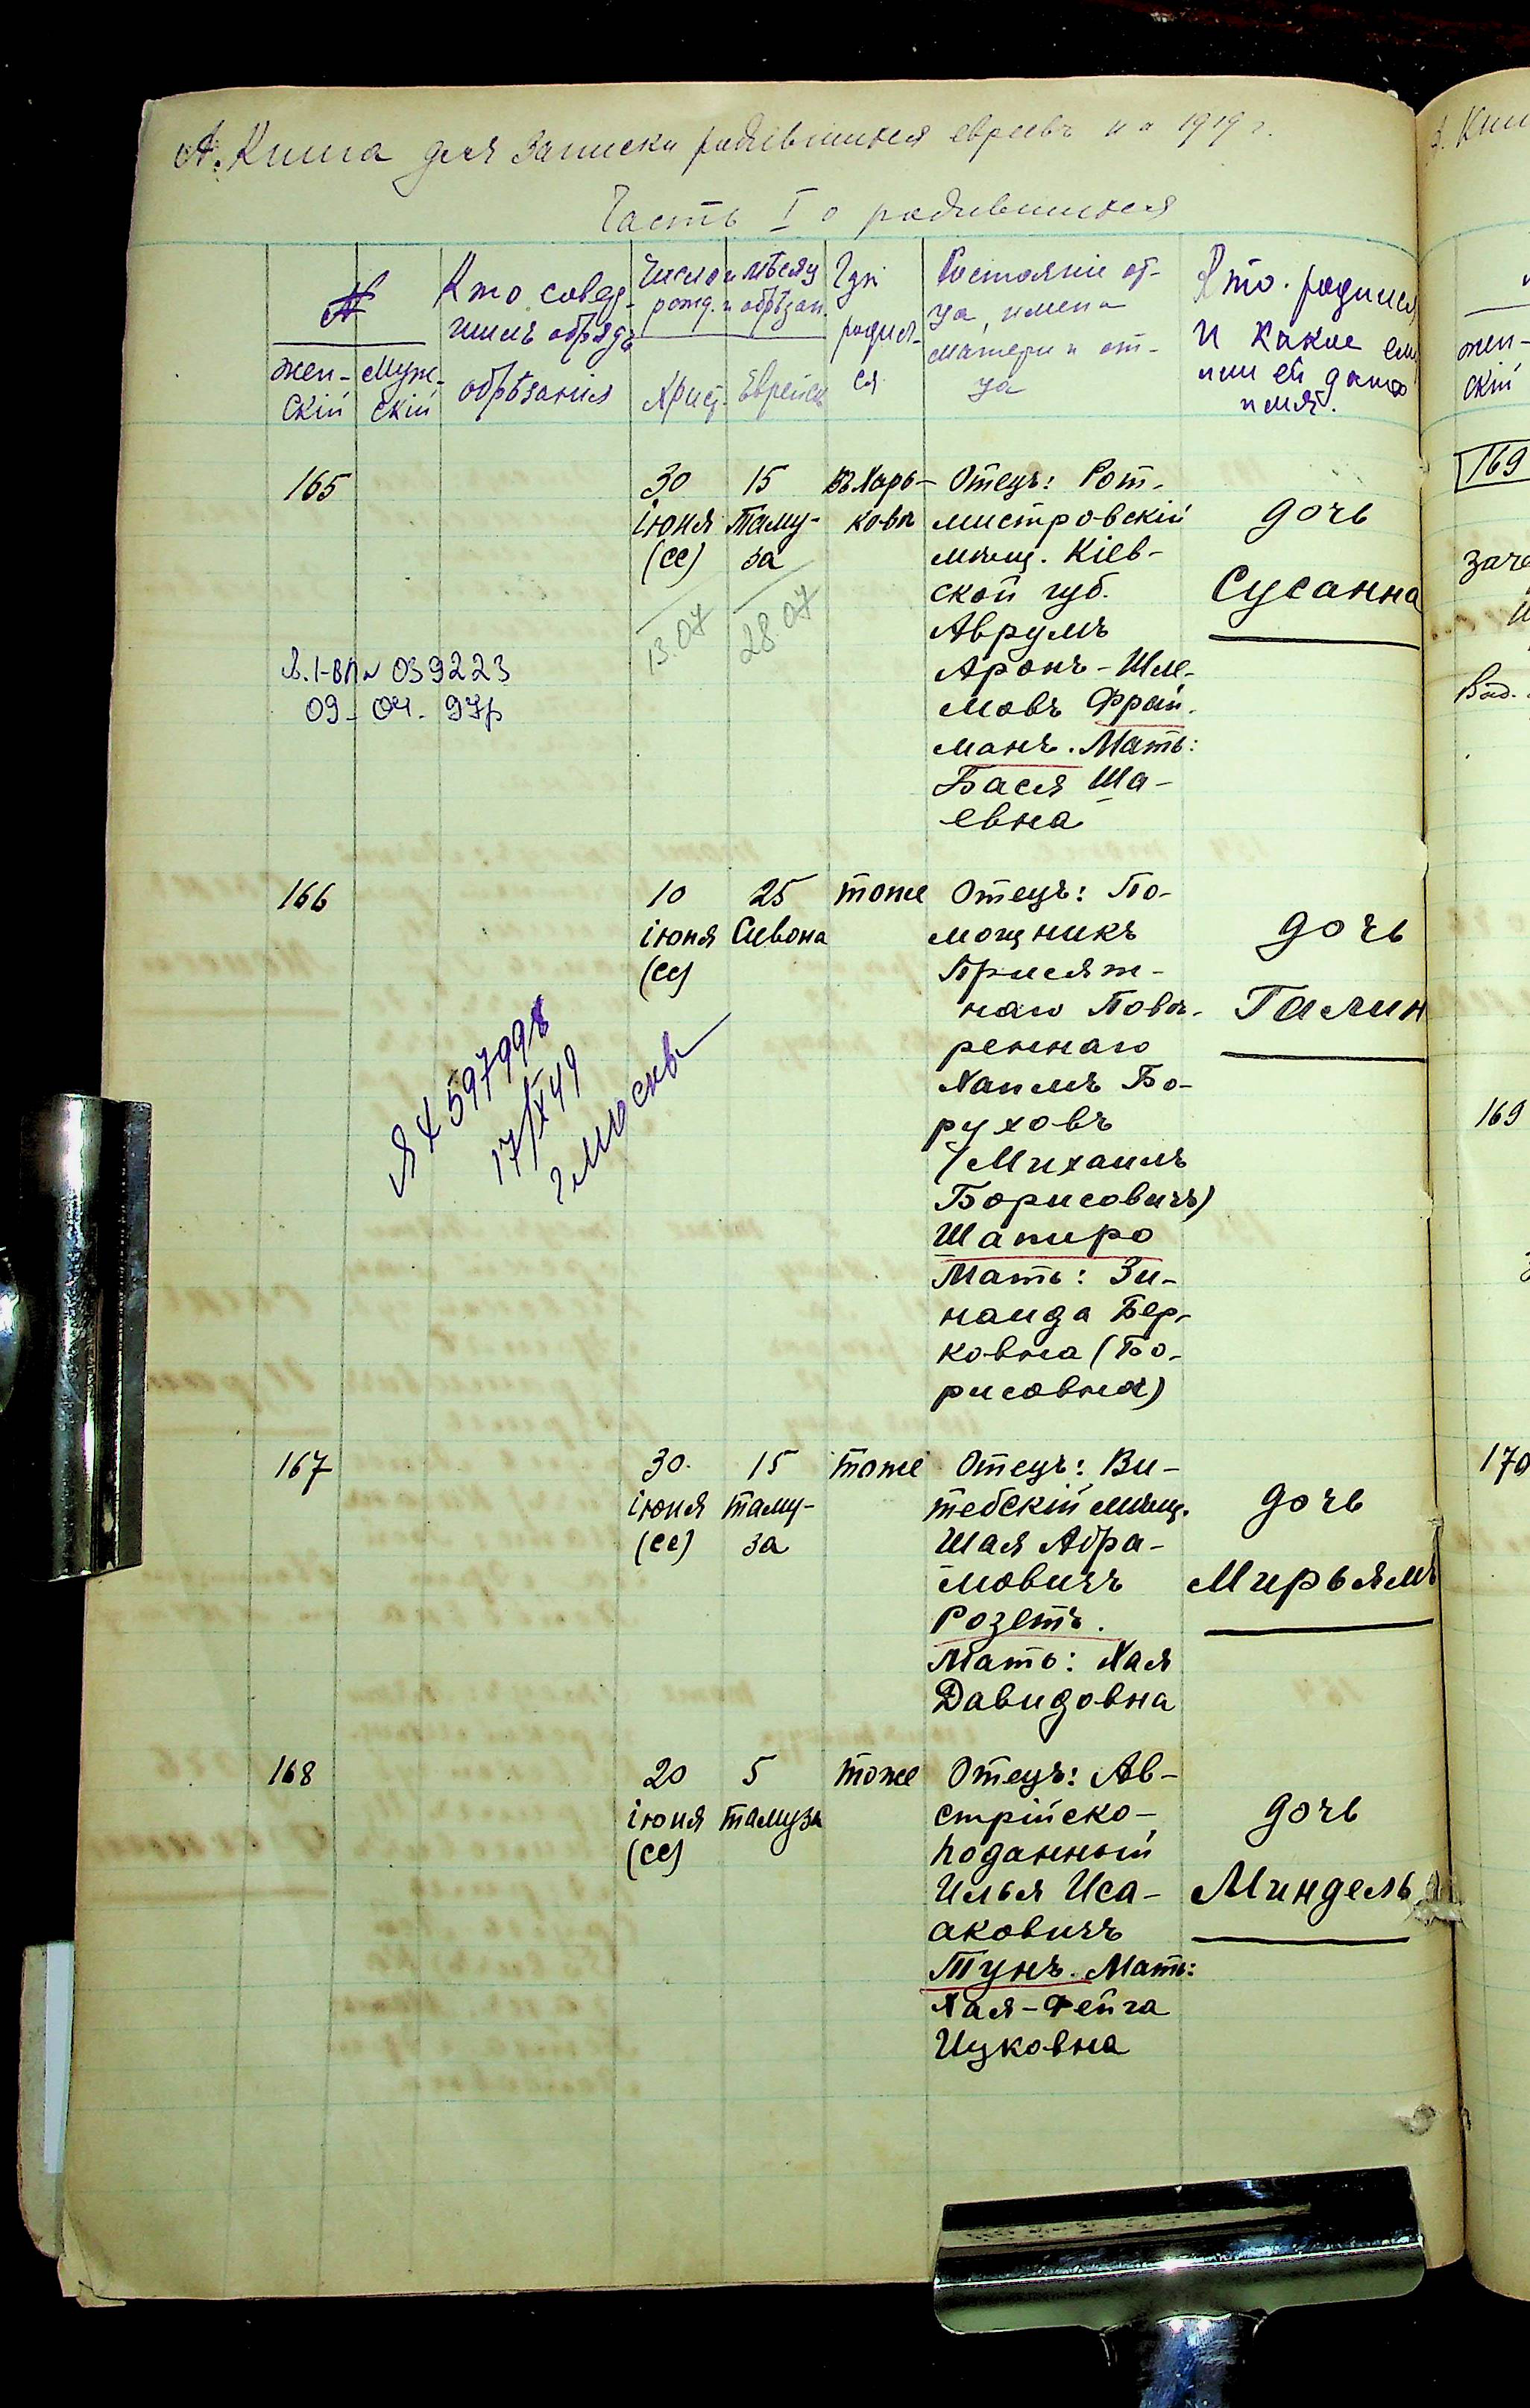 А. Книга для записки родившихся евреевъ на 1919 г.
Часть I о родившихся
№
жен-
скій
муж-
скій
Кто совер-
шилъ обрядъ
обрѣзанія
Число и мѣсяц
рожд. и обрѣзан.
Христ.
Еврейск
Гдѣ
родил-
ся
Состояніе от-
ца, имена
матери и от-
ца
Кто родился
и какое ему
или ей дано
имя.
165
30
іюня
(сс)
13.07
15
Таму-
за
28.07
въ Харь-
ковѣ
Отецъ: Рот-
мистровскій
мѣщ. Кіев-
ской губ.
Аврумъ
Аронъ-Шле-
мовъ Фрай-
манъ. Мать:
Бася Ша-
евна
дочь
Сусанна
039223
09-04. 97р
166
10
іюня
(сс)
25
Сивона
тоже
Отецъ: По-
мощникъ
Присяж-
наго Повѣ-
реннаго
Хаимъ Бо-
руховъ
(Михаилъ
Борисовичъ)
Шапиро
Мать: Зи-
наида Бер-
ковна (Бо-
рисовна)
дочь
Галин
ЯХ 597998
17/IX 49
г Москв
167
30
іюня
(сс)
15
таму-
за
тоже
Отецъ: Ви-
тебскій мѣщ.
Шая Абра-
мовичъ
Розетъ.
Мать: Хая
Давидовна
дочь
Мирьямъ
168
20
іюня
(сс)
5
тамуза
тоже
Отецъ: Ав-
стрійско-
поданный
Илья Иса-
аковичъ
Тунъ. Мать:
Хая-Фейга
Ицковна
дочь
Миндель
А. Кни
жен-
скій
169
169
170